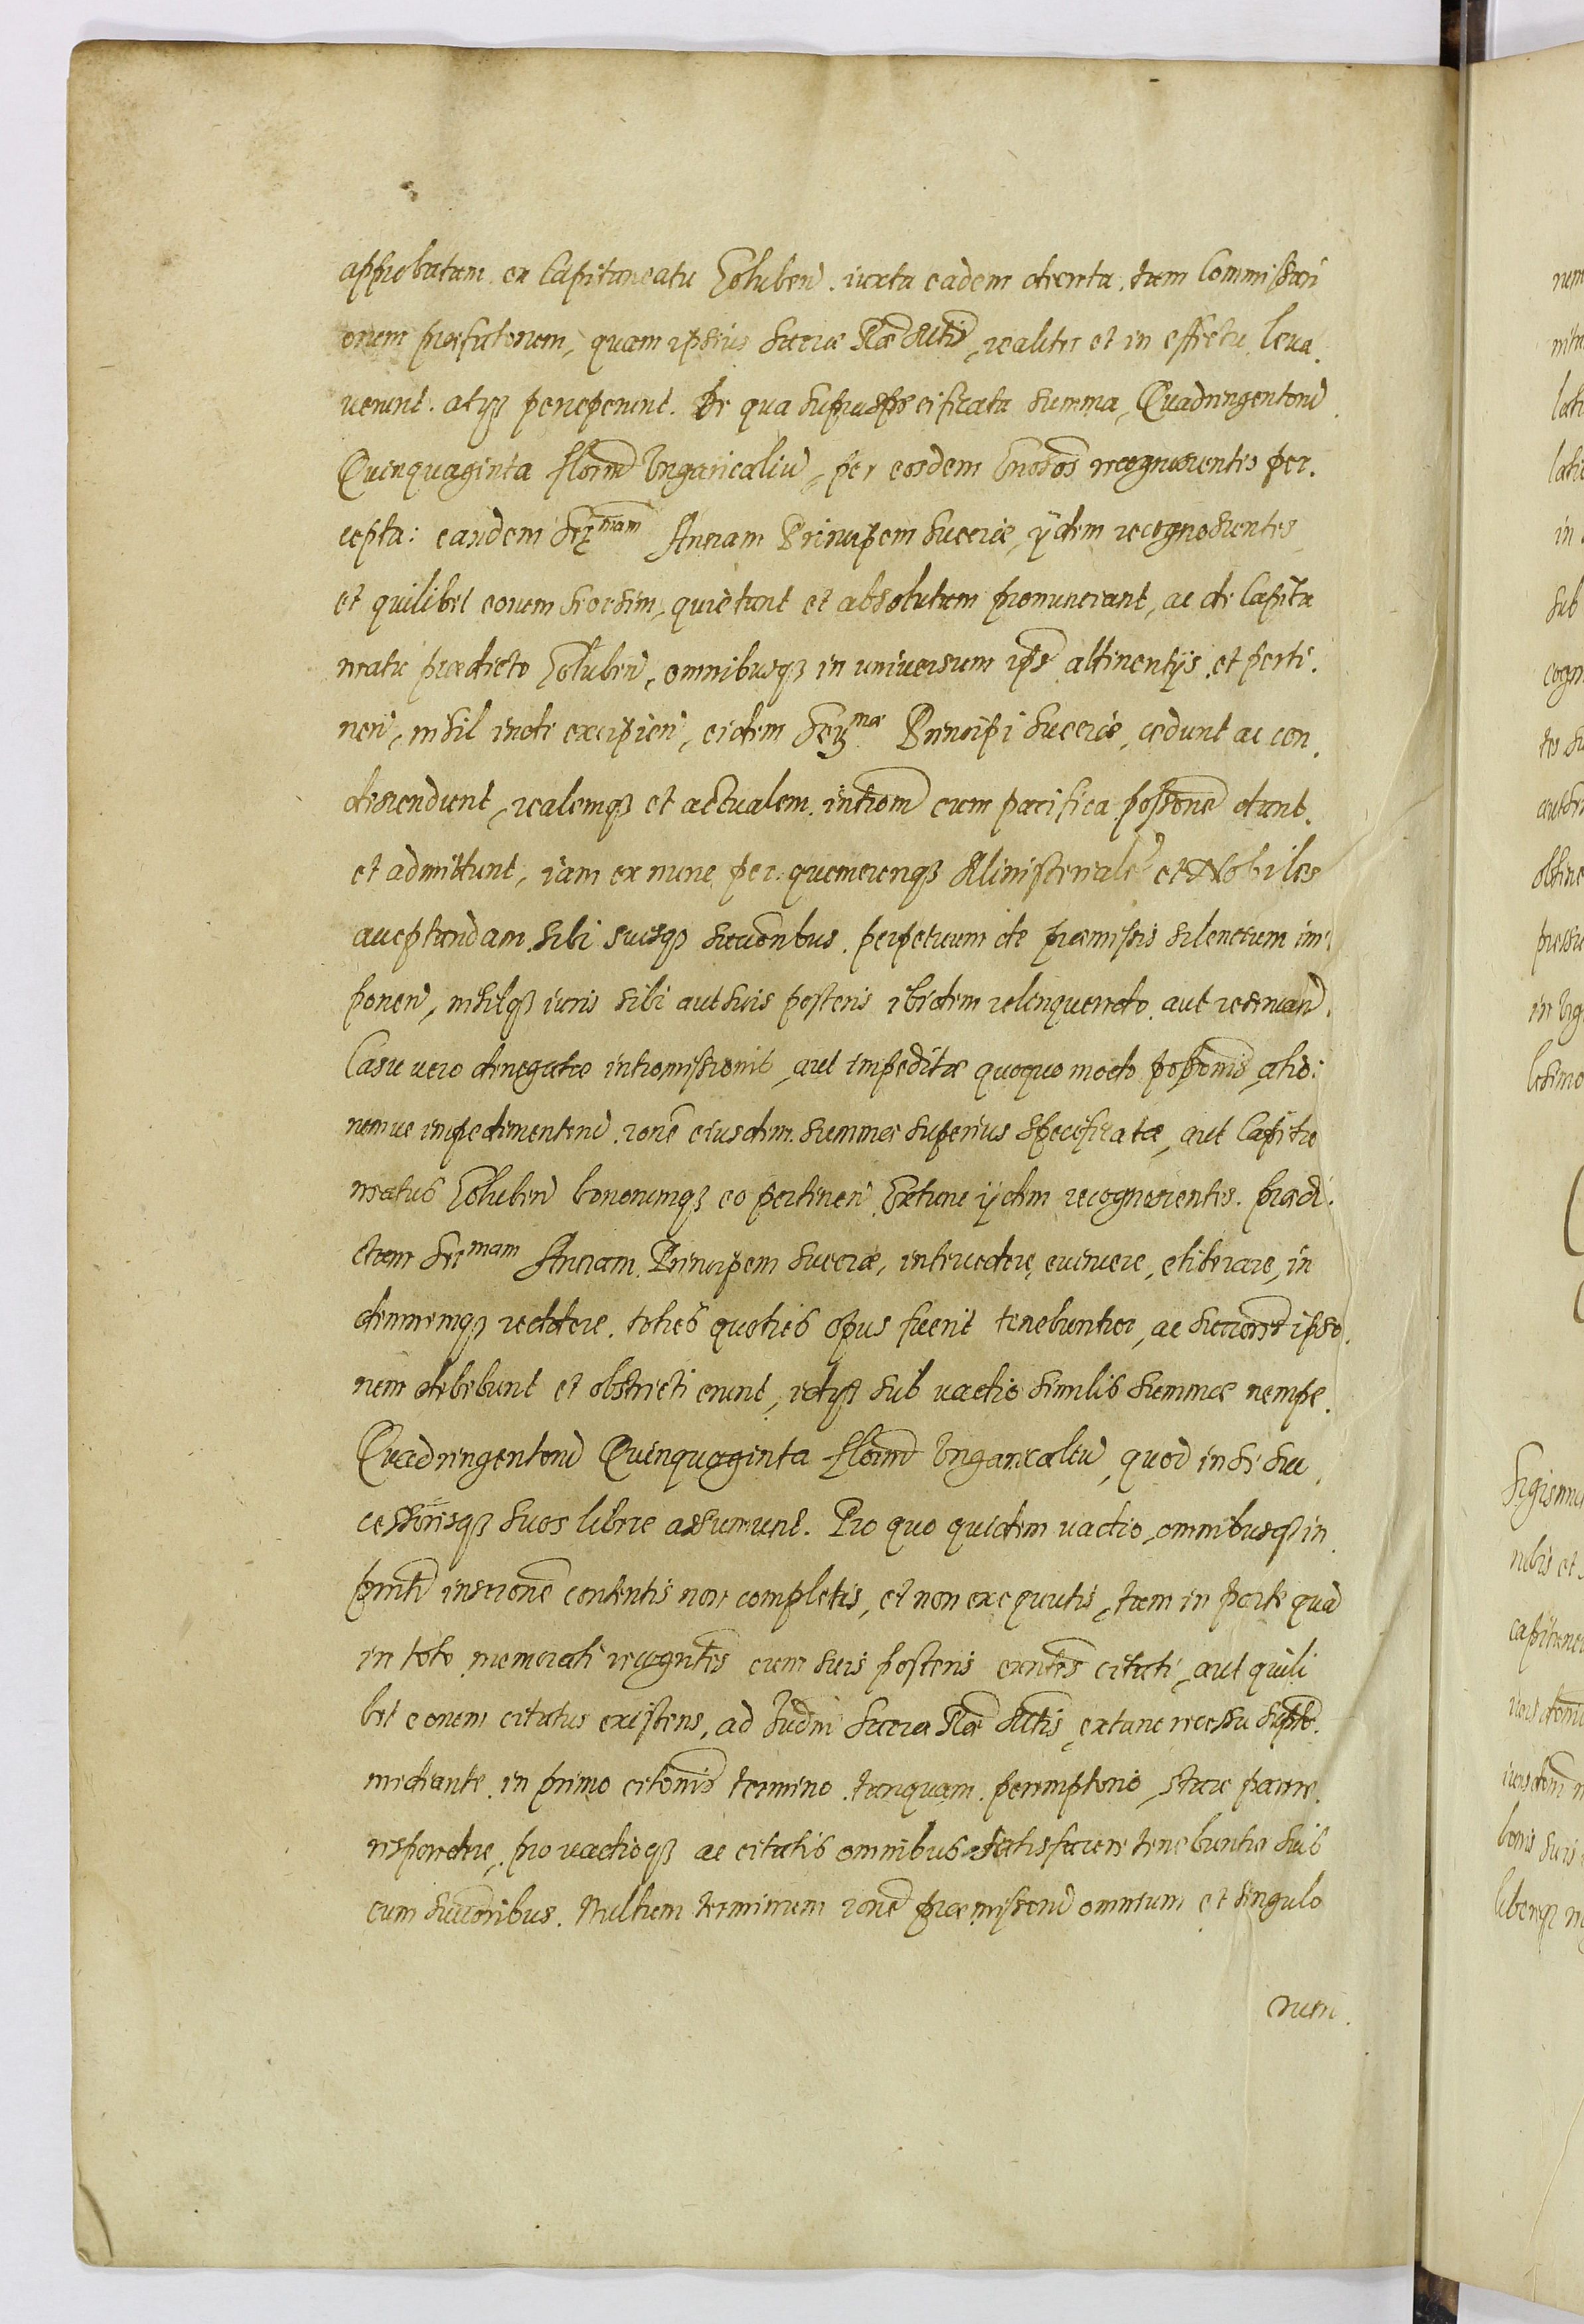 approbatam ex Capitaneatu Goluben. iuxta eadem decreta, tam Commissari
orum præfatorum, quam ipsius Sacræ Ræ Mtis, realiter et in effectu leua
uerunt. atqȝ perceperunt. De qua supraspecificata summa, Quadringentorū
Quinquaginta floren̄ Vngaricaliū, per eosdem Gnosos recognoscentes per,
cepta: eandem Serᵐᵃᵐ Annam Principem Sueciæ, ijdem recognoscentes
et quilibet eorum seorsim, quietant et absolutam pronunciant, ac de Capita
neatu prædicto Goluben̄, omnibusqȝ in uniuersum ips attinentijs, et perti,
nen̄, nihil inde excipien̄, eidem Serᵐᵃᵉ Principi Sueciæ, cedunt ac con,
descendunt, realemqȝ et actualem, introm̄ cum pacifica possone dant,
et admittunt, iam ex nunc per quemcunqȝ Ministeriale et Nobiles
acceptandam, sibi suisqȝ succoribus, perpetuum de præmissis silencium im,
ponen̄, nihilqȝ iuris sibi aut suis posteris ibidem relinquendo, aut reseruand.
Casu uero denegatæ intromissionis, aut impeditæ quoquo modo possonis, alio:
rumue impedimentorū, rone eiusdem summæ superius specificatæ, aut Capita
neatus Goluben̄ bonorumqȝ eo pertinen̄, Extunc ijdem recognoscentes, prædi
ctam Serᵐᵃᵐ Annam Principem Sueciæ, intercedere, euincere, eliberare, in
demnemqȝ reddere, toties quoties opus fuerit tenebuntur, ac succores ipso
rum debebunt et obstricti erunt, idqȝ sub uadio similis summæ nempe,
Quadringentorū Quinquaginta floren̄ Vngaricaliū, quod in se suc
cessoresqȝ suos libere assumunt. Pro quo quidem uadio, omnibusqȝ in
pnti inscrone contentis non completis, et non exequutis, tam in parte quā
in toto, memorati recogntes cum suis posteris exntes citati, aut quili
bet eorum citatus existens, ad Iudm Sacræ Ræ Mtis, extunc recessu supto
mediante, in primo citonis termino, tanquam peremptorio, stare parere,
respondere, pro uadioqȝ ac citatis omnibus satisfacere tenebuntur suis
cum succoribus. Nullum terminum rone præmissorū omnium et singulo
rum.